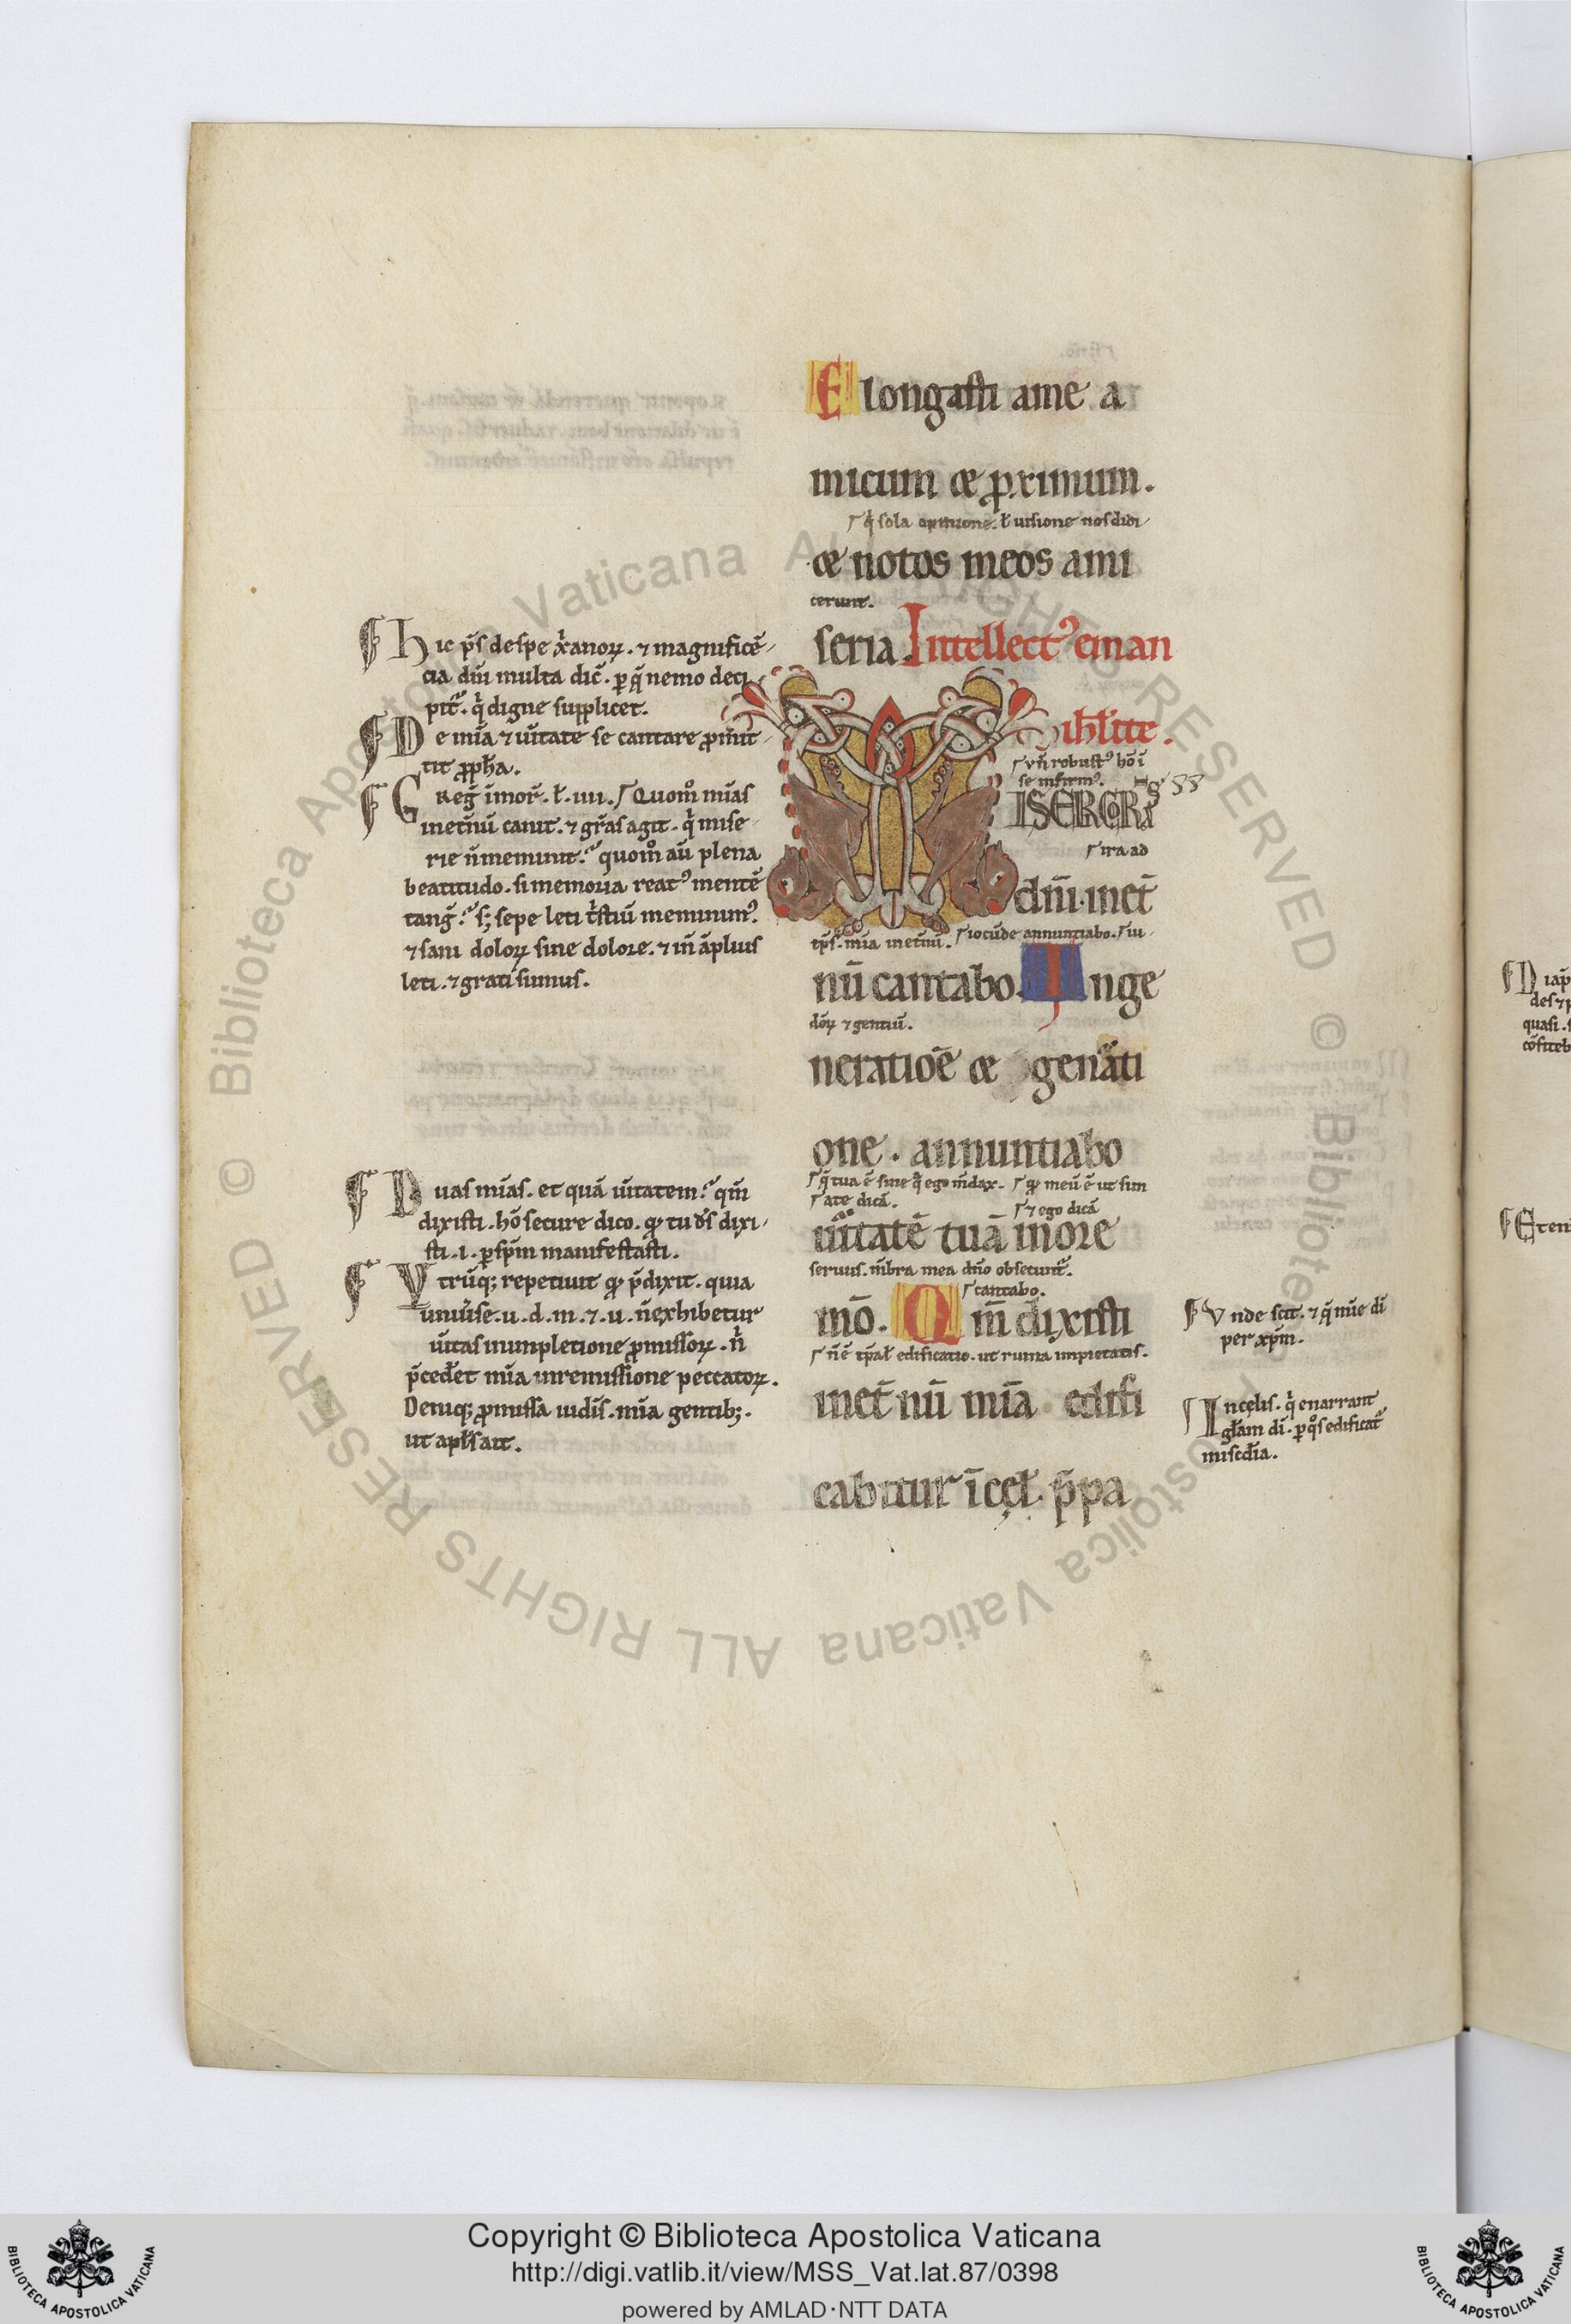 Elongasti a me a
micum & p̱ximum.
⌜q̇ sola opinione. ł uisione nos didi-
& notos meos ami
cerunt.
seria. Intellectꝰ eman
ihƚite.
⌜vn̄ robustꝰ hō ī
se infirmꝰ.
MISERCOR
⌜ira ad
dn̄i. inet̄
tp̄s. mīa inet̄nū. ⌜iocūde annuntiabo. ⌜iu-
nū cantabo. In ge
dōꝝ ⁊ gentiū.
neratiōe & genāti
one. annuntiabo
⌜q̄ tua ē sine q̄ ego m̄dax. ⌜qꝫ meū ē ut sim
⌜a te dicā. ⌜⁊ ego dicā
uītatē tuā in ore
seruus. m̄bra mea dn̄o obsecunt̄.
⌜cantabo.
mō. Qm̄ dixisti
⌜n̄ē tp̄aƚ edificatio. ut ruina impietatis.
inet̄ nū mīa edifi
cabitur ī cęƚ. p̄pa
Hic p̄s de spe x̄anoꝝ. ⁊ magnificē-
cia dn̄i multa dic̄. ꝑ q̄ nemo deci
pit̄. q̇ digne supplicet.
De mīa ⁊ uītate se cantare ꝓmit-
tit ꝓph̄a.
GReḡ ī mor̄. ł. iiii. ⌜Quom̊ mīas
inet̄nū canit. ⁊ gr̄as agit. q̇ mise-
rie n̄ meminit. quom̊ aū plena
beatitudo. si memoria reatꝰ mentē
tanḡ. sꝫ sepe leti ṫstiū meminimꝰ.
⁊ sani doloꝝ sine dolore. ⁊ in̄ āplius
leti. ⁊ grati sumus.
Duas mīas. et quā uītatem. qm̄
dixisti. hō secure dico. qꝫ tu d̄s dixi-
sti. i. ꝑ sp̄m manifestasti.
Vtrūqꝫ repetiuit qꝫ p̄dixit. quia
uniūse. u. d. m. ⁊ u. n̄ exhibetur
uītas in impletione ꝓmissoꝝ. ṅ
p̄ced̄et mīa in remissione peccatoꝝ.
Deniqꝫ ꝓmissa iudīs. mīa gentibꝫ.
ut apƚs ait.
Vnde scit. ⁊ q̄ mīe dī
per xp̄m.
In cęlis. q̇ enarrant
gƚam dī. ꝑ q̊s edificat̄
misc̄dia.
Copyright © Biblioteca Apostolica Vaticana
http://digi.vatlib.it/view/MSS_Vat.lat.87/0398
powered by AMLAD·NTT DATA
BIBLIOTECA APOSTOLICA VATICANA
BIBLIOTECA APOSTOLICA VATICANA
© Biblioteca Apostolica Vaticana ALL RIGHTS RESERVED © Biblioteca Apostolica Vaticana ALL RIGHTS RESERVED